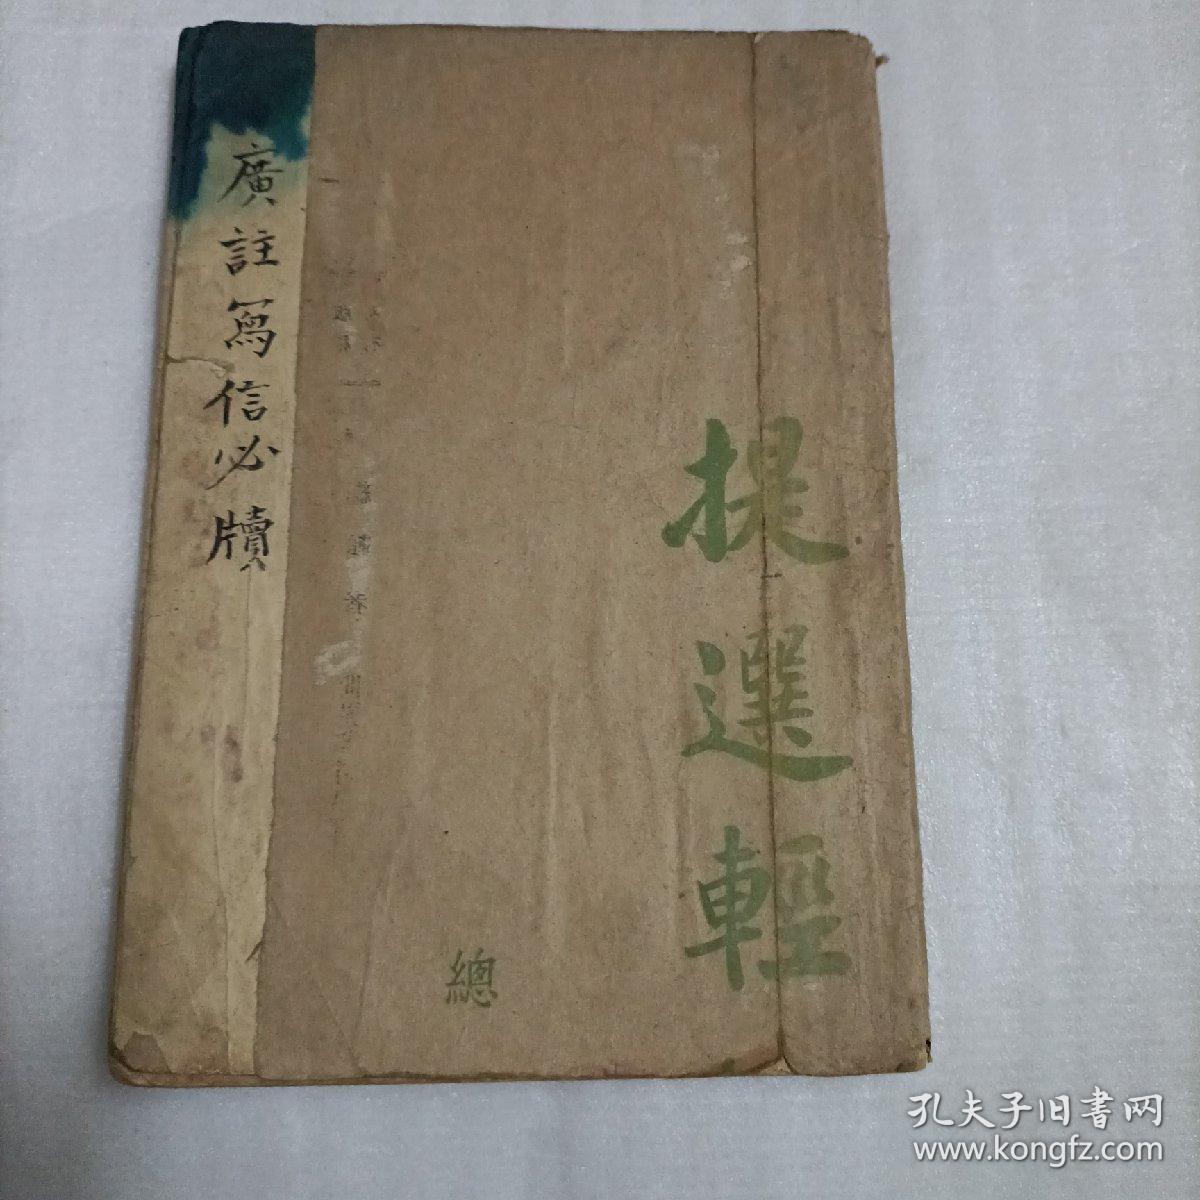 廣註寫信必牘
提選輕
總
孔夫子旧書网
www.kongfz.com